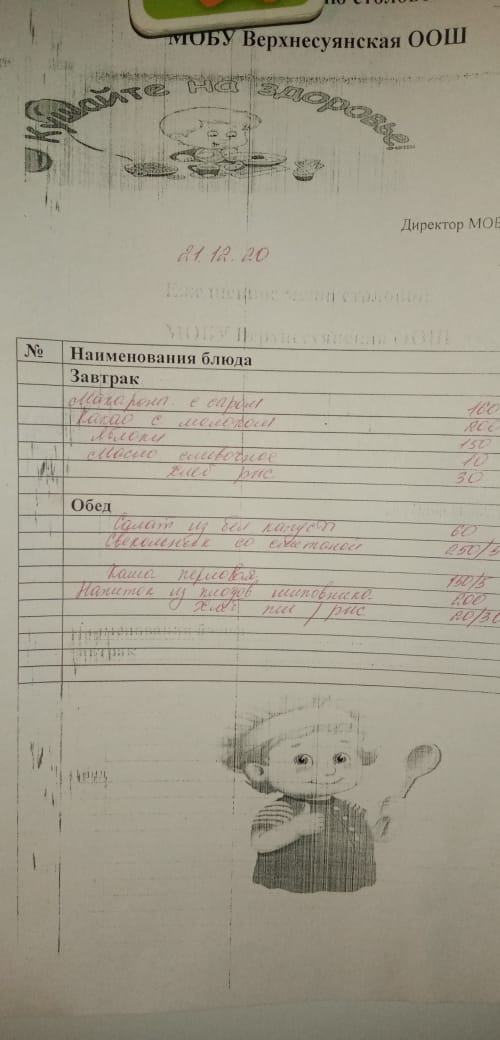 по столово
МОБУ Верхнесуянская ООШ
Кушайте на здоровье
Директор МОБ
21.12.20
Ежедневное меню столовой
МОБУ Верхнесуянская ООШ
№ Наименования блюда
Завтрак
Макароны с сыром 160
Какао с молоком 200
Яблоки 150
Масло сливочное 10
Хлеб рж 30
Обед
Салат из бел капусты 60
Свекольник со сметаной 250/5
Каша перловая 150/5
Напиток из плодов шиповника 200
Хлеб пш / рж 20/30
Наименования блюда
Завтрак